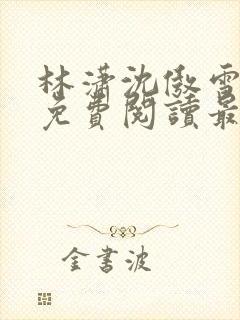 林瀟沈傲雪
免費閱讀最
金書波